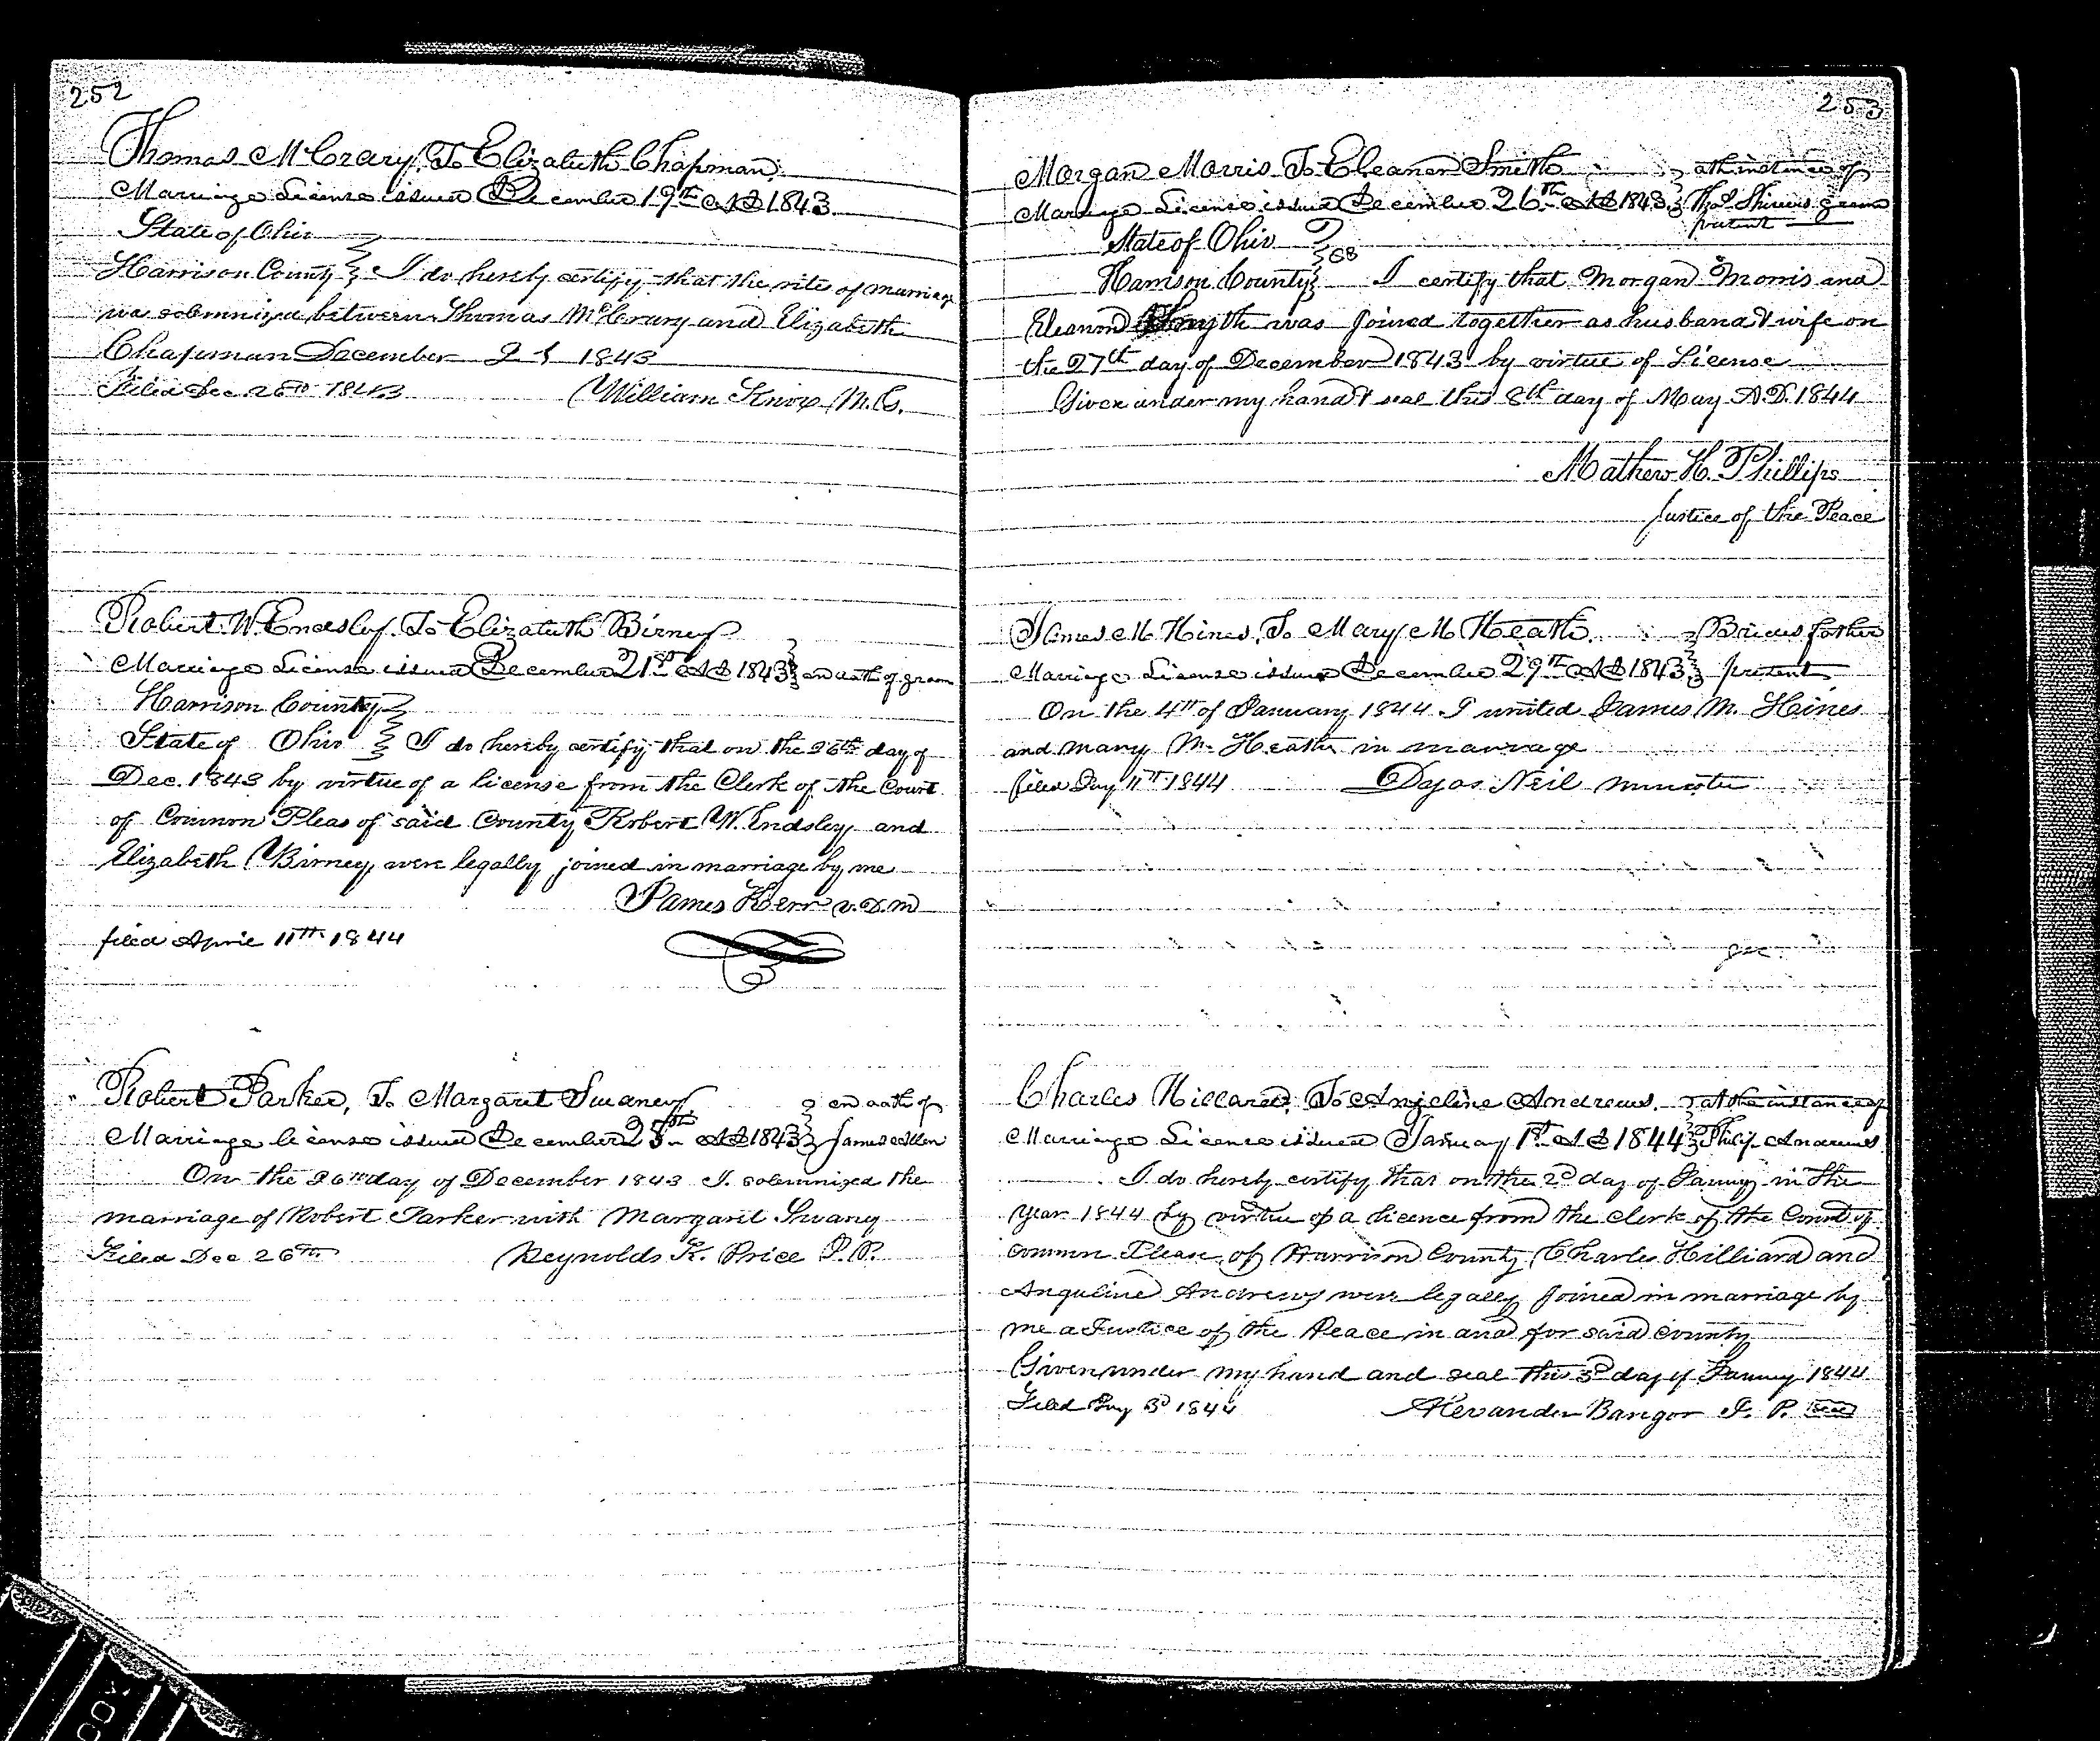 252
Thomas McCrary, To Elizabeth Chapman
Marriage License issued December 19th AD 1843
State of Ohio
Harrison County I do hereby certify that the rite of marriage
was solemnized between Thomas McCrary and Elizabeth
Chapman December 21 1843
Filed Dec 26th 1843 William Knox M.G.
Robert W. Endsley, To Elizabeth Birney
Marriage License issued December 21st AD 1843 on oath of groom
Harrison County
State of Ohio I do hereby certify that on the 26th day of
Dec. 1843 by virtue of a license from the Clerk of the Court
of Common Pleas of said County Robert W. Endsley and
Elizabeth Birney were legally joined in marriage by me
James Kerr V.D.M
filed April 11th 1844
Robert Parker, To Margaret Swaney on oath of
Marriage license issued December 25th AD 1843 James Allen
On the 26th day of December 1843 I solemnized the
marriage of Robert Parker with Margaret Swany
Filed Dec 26th Reynolds K. Price P.P.
253
Morgan Morris To Eleanor Smith at instance of
Marriage License issued December 26th AD 1843 groom
present
State of Ohio
Harrison County I certify that Morgan Morris and
Eleanor was joined together as husband & wife on
the 27th day of December 1843 by virtue of License
Given under my hand & seal this 8th day of May A.D. 1844
Mathew H. Phillips
Justice of the Peace
James M Hines, To Mary M Heath. Brides father
Marriage License issued December 29th AD 1843 present
On the 4th of January 1844 I united James M. Hines
and Mary M. Heath in marriage
filed Jany 11th 1844 Dyas Neil minister
Charles Hillard, To Anjeline Andrews. at the instance of
Marriage License issued January 1st AD 1844 Philip Andrews
I do hereby certify that on the 2d day of Januy in the
year 1844 by virtue of a licence from the clerk of the Count of
common Please of Harrison County Charles Hilliard and
Anguline Andrews were legally joined in marriage by
me a Justice of the Peace in and for said County
Given under my hand and seal this 3d day of Januy 1844
Filed Jany 3d 1844 Alexander Bangor J. P. seal